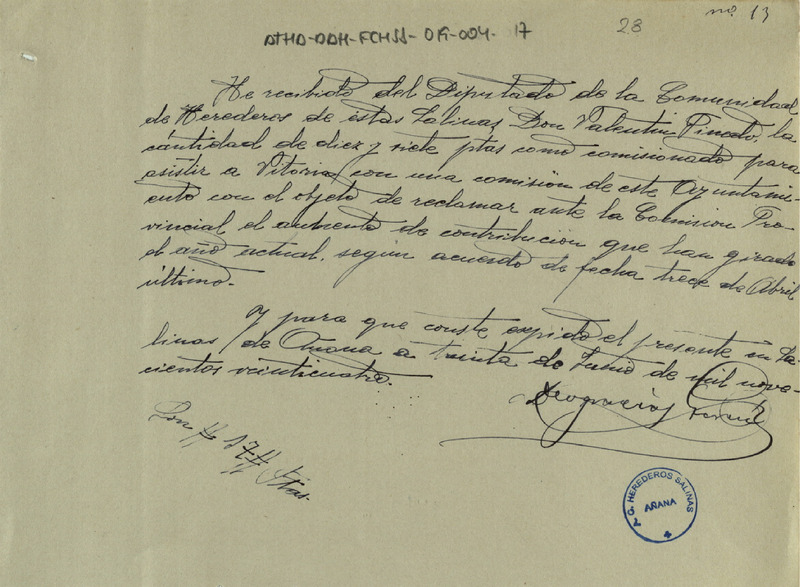 nº 13
28
ATHA-DAH-FCHSS-019-004-17
He recibido del Diputado de la Comunidad
de Herederos de éstas Salinas, Don Valentin Pinedo, la
cántidad de diez y siete ptas como comisionado para
asistir a Vitoria con una comisión de este Ayuntami-
ento con el objeto de reclamar ante la Comision Pro-
vincial el aumento de contribucion que han girado
el año actual, según acuerdo de fecha trece de Abril
último.
Y para que conste expido el presente en Sa-
linas de Añana a treinta de Junio de mil nove-
cientos veinticuatro.
Deogracias
Son # 17 # Ptas.
HEREDEROS SALINAS
AÑANA